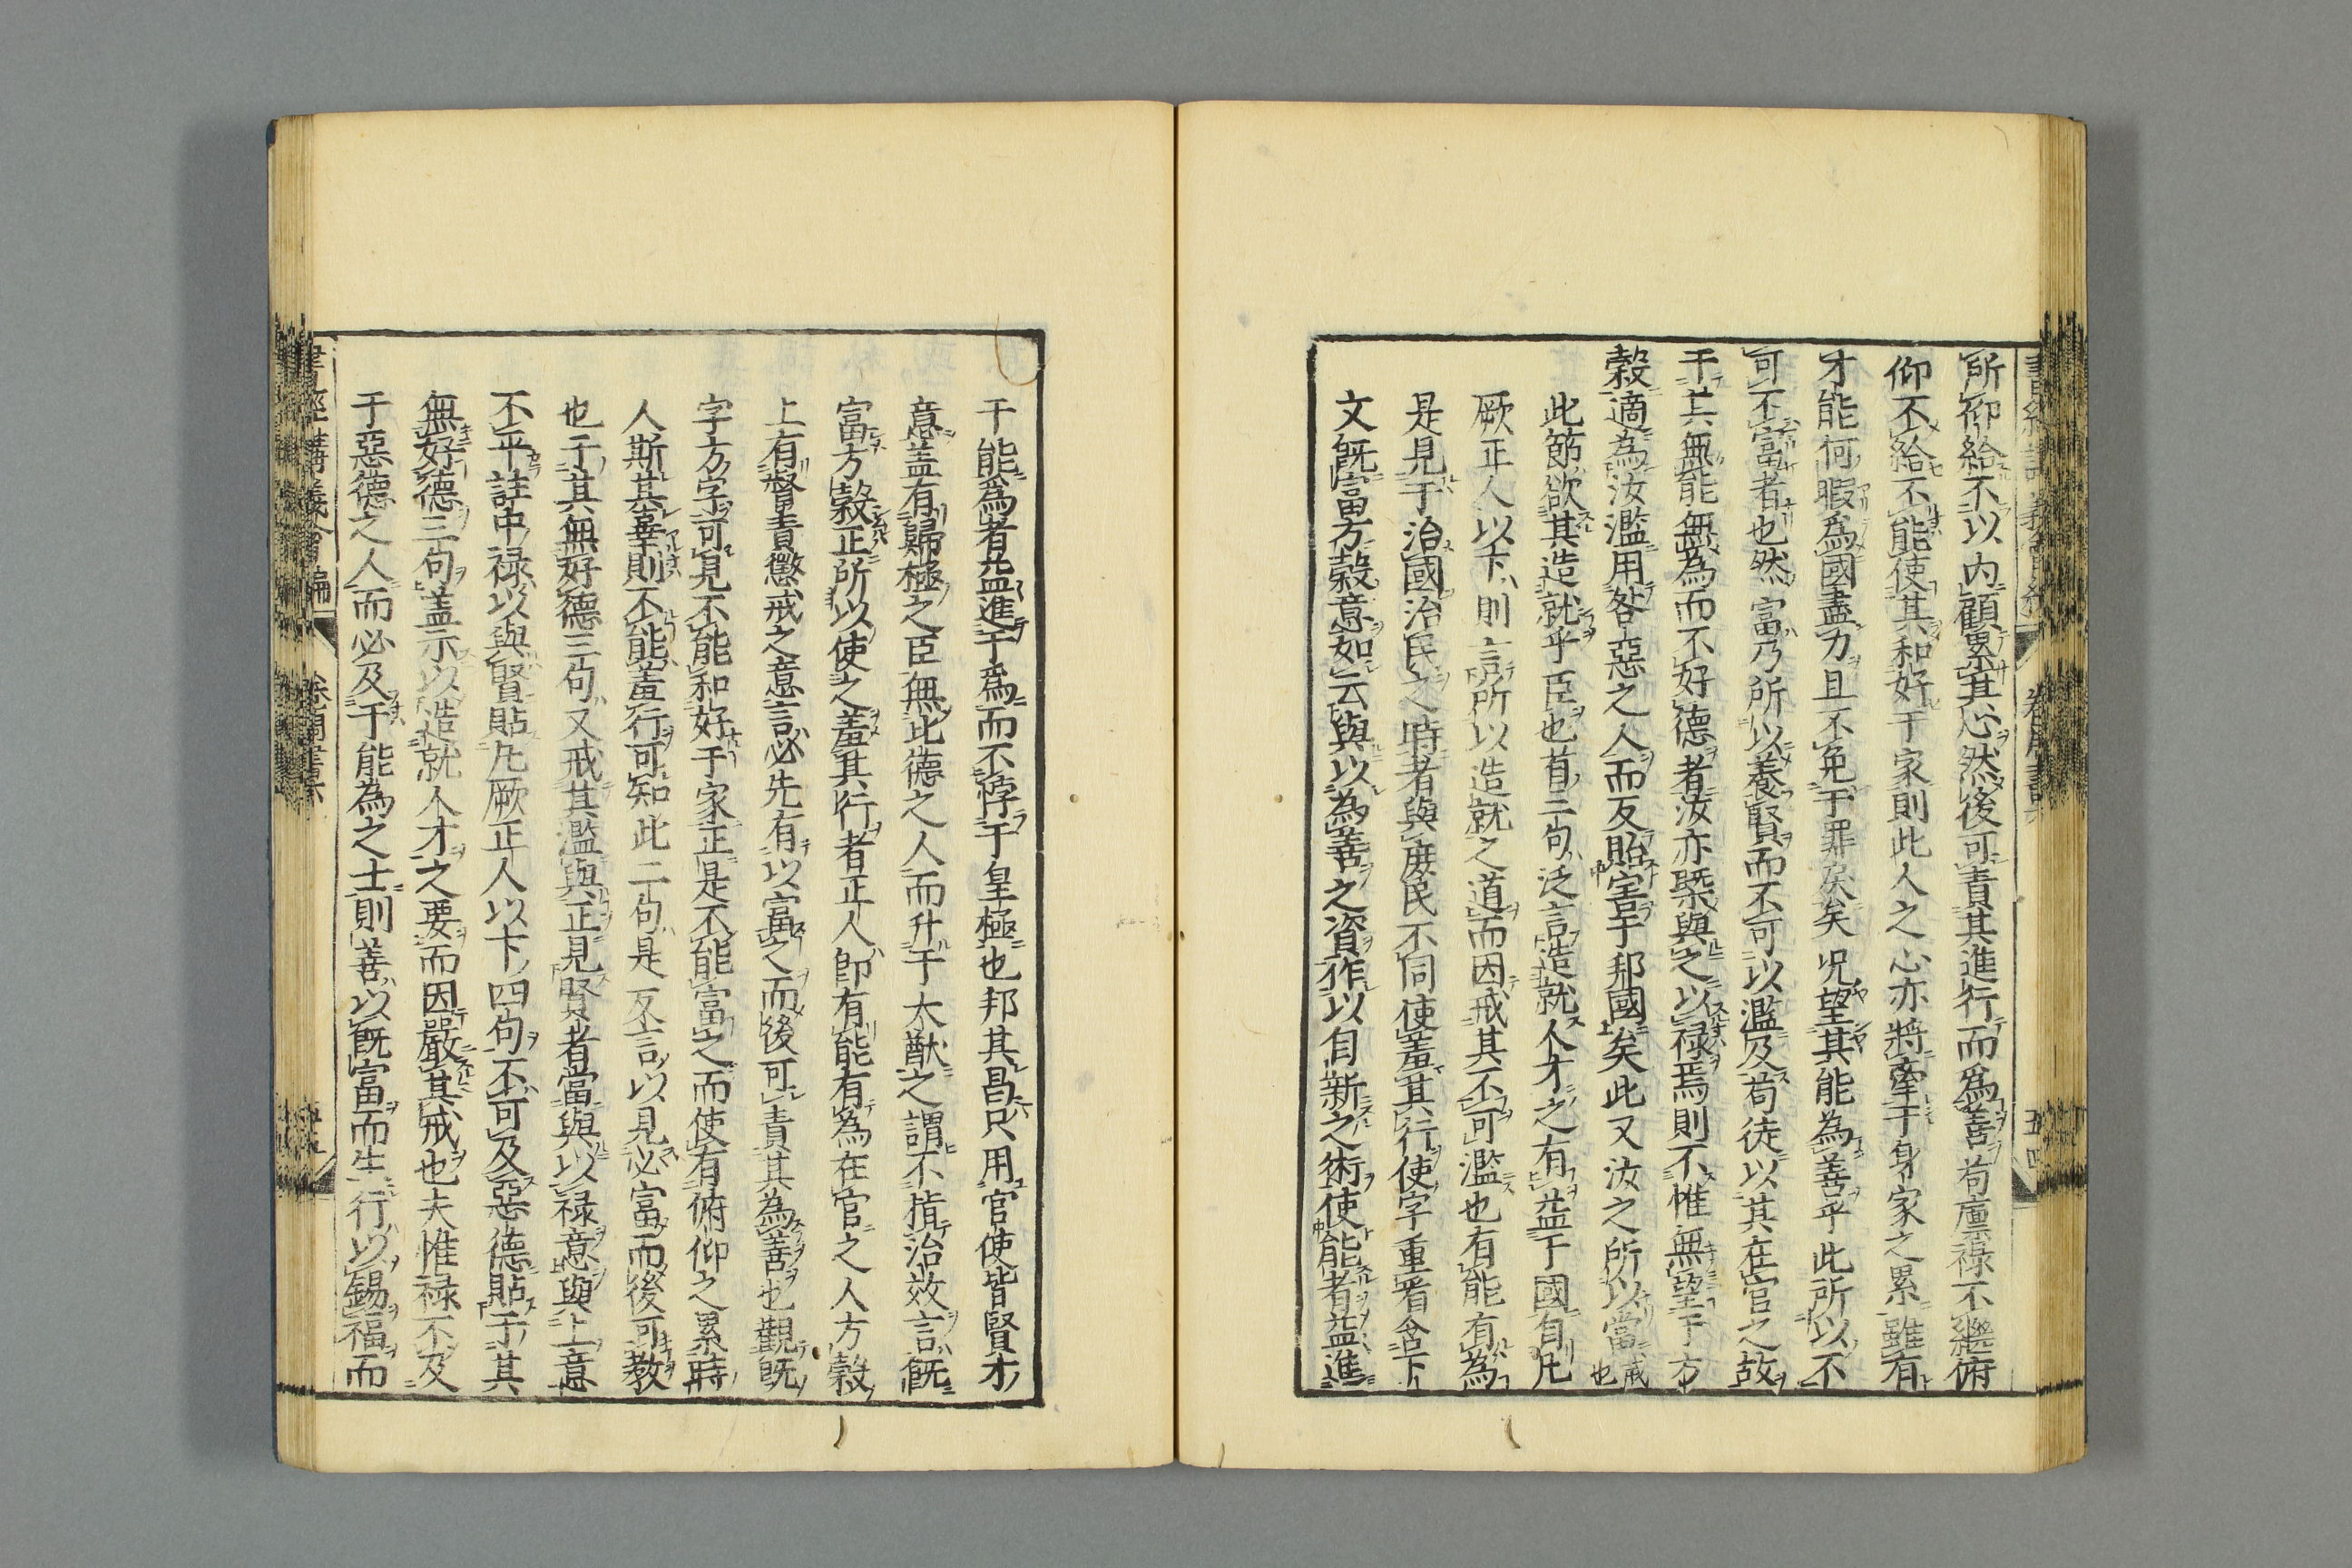 所仰給不以内顧累其心然後可責其進行而為善苟廩禄不繼俯
仰不給不能使其和好于家則此人之心亦將牽于身家之累雖有
才能何暇為國盡力且不免于罪戾矣况望其能為善乎此所以不
可不富者也然富乃所以養賢而不可以濫及苟徒以其在官之故
于其無能無為而不好德者汝亦槩與之以禄焉則不惟無望于方
穀適為汝濫用咎惡之人而反貽害于邦國矣此又汝之所以當戒也
此節欲其造就乎臣也首三句泛言造就人才之有益于國自凡
厥正人以下則言所以造就之道而因戒其不可濫也有能有為
是見于治國治民之時者與庶民不同使羞其行使字重看含下
文既富方穀意如云與以為善之資作以自新之術使能者益進
于能為者益進于為而不悖于皇極也邦其昌只用官使皆賢才
意盖有歸極之臣無比德之人而升于大猷之謂不指治效言既
富方穀正所以使之羞其行者正人即有能有為在官之人方穀
上有督責懲戒之意言必先有以富之而後可責其為善也觀既
字方字可見不能和好于家正是不能富之而使有俯仰之累時
人斯其辜則不能羞行可知此二句是反言以見必富而後可教
也于其無好德三句又戒其濫與正見賢者當與以禄意與上意
不平註中禄以與賢貼凡厥正人以下四句不可及惡德貼于其
無好德三句盖示以造就人才之要而因嚴其戒也夫惟禄不及
于惡德之人而必及于能為之士則善以既富而生行以錫福而
書經講義會編
卷